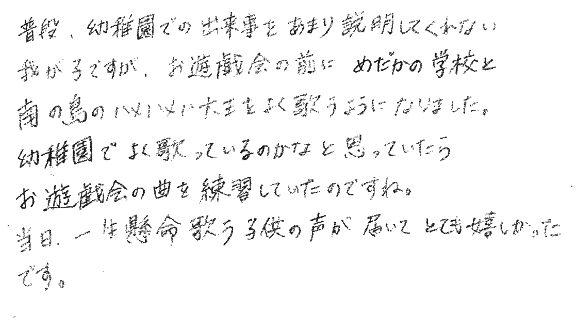 普段、幼稚園での出来事をあまり説明してくれない
我が子ですが、お遊戯会の前に めだかの学校と
南の島のハメハメハ大王をよく歌うようになりました。
幼稚園でよく歌っているのかなと思っていたら
お遊戯会の曲を練習していたのですね。
当日、一生懸命歌う子供の声が届いてとても嬉しかった
です。